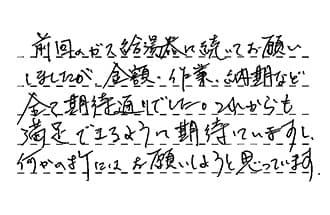 前回のガス給湯器に続いてお願い
しましたが、金額・作業・納期など
全て期待通りでした。これからも
満足できるように期待していますし、
何かの時にはお願いしようと思っています。